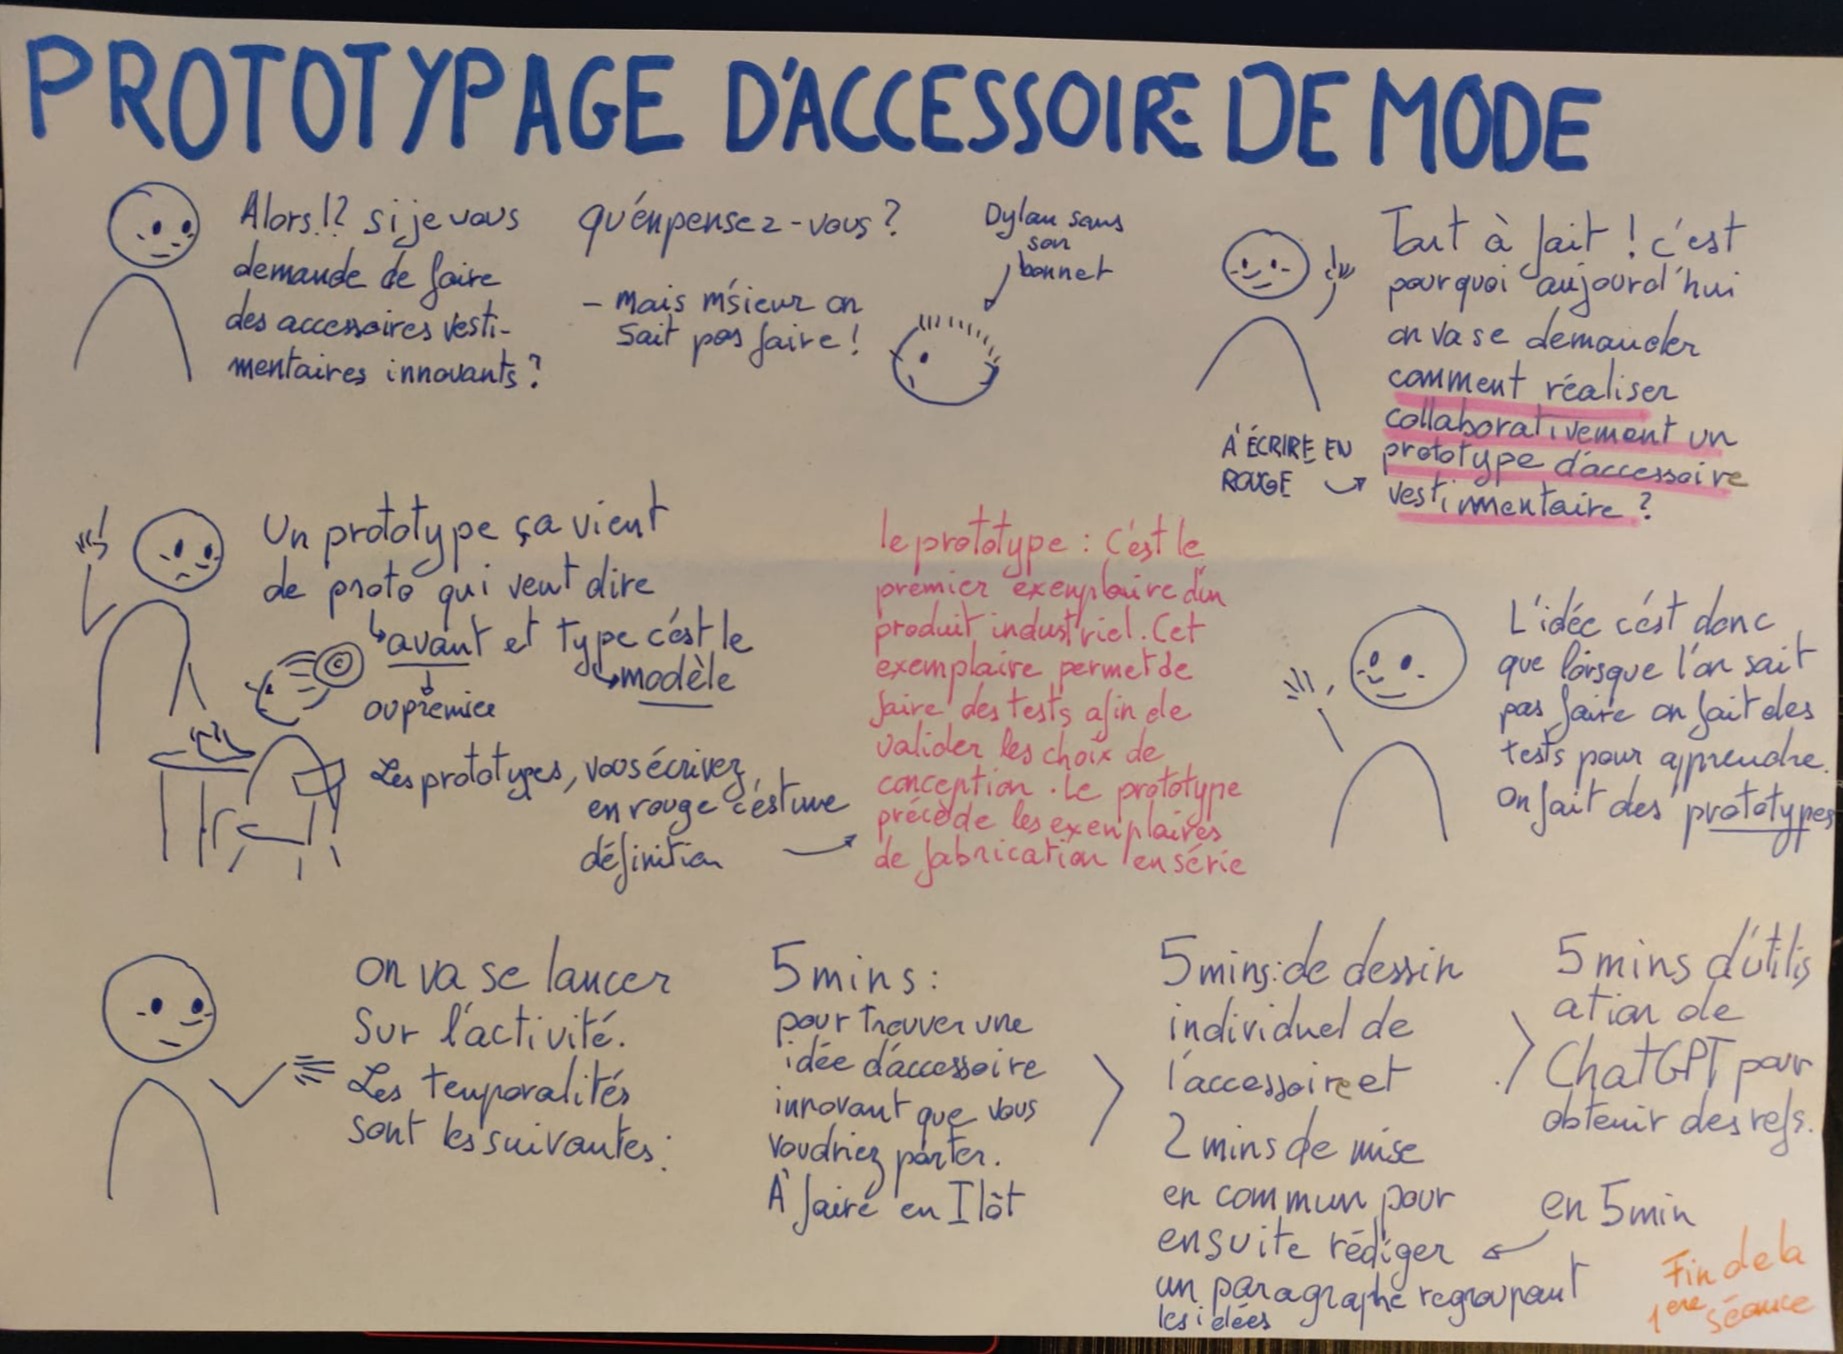 PROTOTYPAGE D'ACCESSOIRE DE MODE
Alors!? si je vous
demande de faire
des accessoires vesti-
mentaires innovants?
qu'enpensez-vous?
- Mais m'sieur on
sait pas faire!
Dylan sans
son
bonnet
Tout à fait! c'est
pourquoi aujourd'hui
on va se demander
comment réaliser
collaborativement un
prototype d'accessoire
vestimentaire?
À ÉCRIRE EN
ROUGE
Un prototype ça vient
de proto qui veut dire
avant et type c'est le
modèle
ou premier
Les prototypes, vous écrivez
en rouge c'est une
définition
le prototype : c'est le
premier exemplaire d'un
produit industriel. Cet
exemplaire permet de
faire des tests afin de
valider les choix de
conception. Le prototype
précède les exemplaires
de fabrication en série
L'idée c'est donc
que lorsque l'on sait
pas faire on fait des
tests pour apprendre.
on fait des prototypes
on va se lancer
sur l'activité.
Les temporalités
sont les suivantes:
5 mins:
pour trouver une
idée d'accessoire
innovant que vous
voudriez porter.
À faire en Ilôt
5 mins: de dessin
individuel de
l'accessoire et
2 mins de mise
en commun pour
ensuite rédiger
un paragraphe regroupant
les idées
5 mins d'utilis
ation de
ChatGPT pour
obtenir des refs.
en 5 min
Fin de la
1ere séance